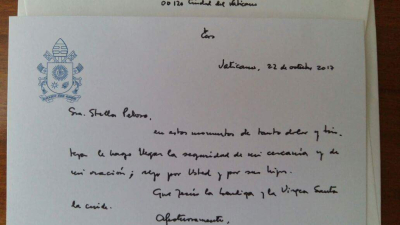 00120 Ciudad del Vaticano
Vaticano, 22 de octubre 2017
Sra. Stella Peloso,
en estos momentos de tanto dolor y tris-
teza le hago llegar la seguridad de mi cercanía y de
mi oración; rezo por Usted y por sus hijos.
Que Jesús la bendiga y la Virgen Santa
la cuide.
Afectuosamente,